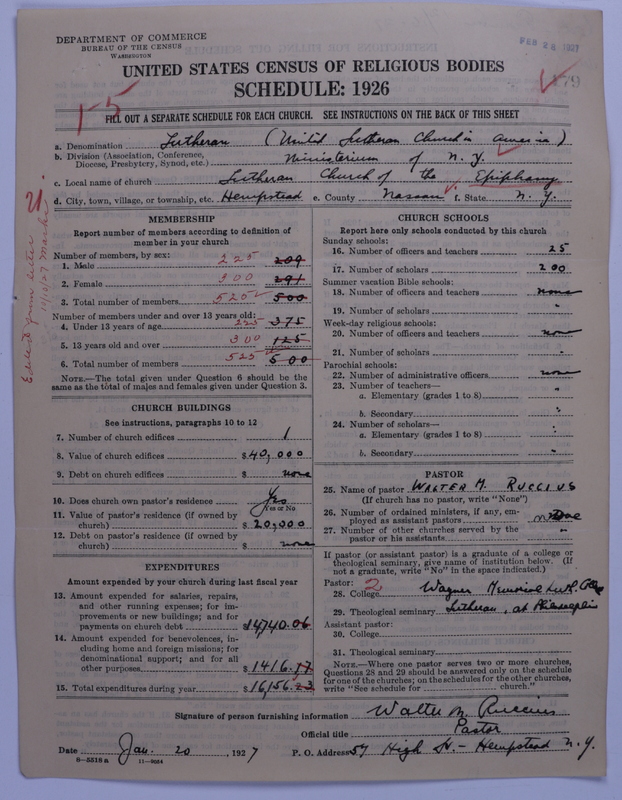 DEPARTMENT OF COMMERCE
BUREAU OF THE CENSUS
WASHINGTON
FEB 23 1927
UNITED STATES CENSUS OF RELIGIOUS BODIES
SCHEDULE: 1926
179
1-5
FILL OUT A SEPARATE SCHEDULE FOR EACH CHURCH. SEE INSTRUCTIONS ON THE BACK OF THIS SHEET
a. Denomination Lutheran (United Lutheran Church in America)
b. Division (Association, Conference, Diocese, Presbytery, Synod, etc.) Ministerium of N. Y.
c. Local name of church Lutheran Church of the Epiphany
d. City, town, village, or township, etc. Hempstead e. County Nassau f. State N. Y.
MEMBERSHIP
Report number of members according to definition of
member in your church
Number of members, by sex:
1. Male 225 209
2. Female 300 291
3. Total number of members 525 500
Number of members under and over 13 years old:
4. Under 13 years of age 225 375
5. 13 years old and over 300 125
6. Total number of members 525 500
NOTE.—The total given under Question 6 should be the
same as the total of males and females given under Question 3.
CHURCH BUILDINGS
See instructions, paragraphs 10 to 12
7. Number of church edifices 1
8. Value of church edifices $40,000
9. Debt on church edifices $ none
10. Does church own pastor's residence Yes
(Yes or No)
11. Value of pastor's residence (if owned by
church) $ 20,000
12. Debt on pastor's residence (if owned by
church) $ none
EXPENDITURES
Amount expended by your church during last fiscal year
13. Amount expended for salaries, repairs,
and other running expenses; for im-
provements or new buildings; and for
payments on church debt $14,740.06
14. Amount expended for benevolences, in-
cluding home and foreign missions; for
denominational support; and for all
other purposes $1416.17
15. Total expenditures during year $16,156.23
CHURCH SCHOOLS
Report here only schools conducted by this church
Sunday schools:
16. Number of officers and teachers 25
17. Number of scholars 200
Summer vacation Bible schools:
18. Number of officers and teachers none
19. Number of scholars "
Week-day religious schools:
20. Number of officers and teachers none
21. Number of scholars "
Parochial schools:
22. Number of administrative officers none
23. Number of teachers—
a. Elementary (grades 1 to 8) "
b. Secondary "
24. Number of scholars—
a. Elementary (grades 1 to 8) "
b. Secondary "
PASTOR
25. Name of pastor WALTER M. RUCCIUS
(If church has no pastor, write "None")
26. Number of ordained ministers, if any, em-
ployed as assistant pastors none
27. Number of other churches served by the
pastor or his assistants "
If pastor (or assistant pastor) is a graduate of a college or
theological seminary, give name of institution below. (If
not a graduate, write "No" in the space indicated.)
Pastor: 2
28. College Wagner Memorial Luth. College
29. Theological seminary Lutheran, at Philadelphia
Assistant pastor:
30. College
31. Theological seminary
NOTE.—Where one pastor serves two or more churches,
Questions 28 and 29 should be answered only on the schedule
for one of the churches; on the schedules for the other churches,
write "See schedule for church."
Signature of person furnishing information Walter M. Ruccius
Official title Pastor
Date Jan. 20, 1927 P. O. Address 57 High St. - Hempstead N. Y.
8-5518 a 11-9034